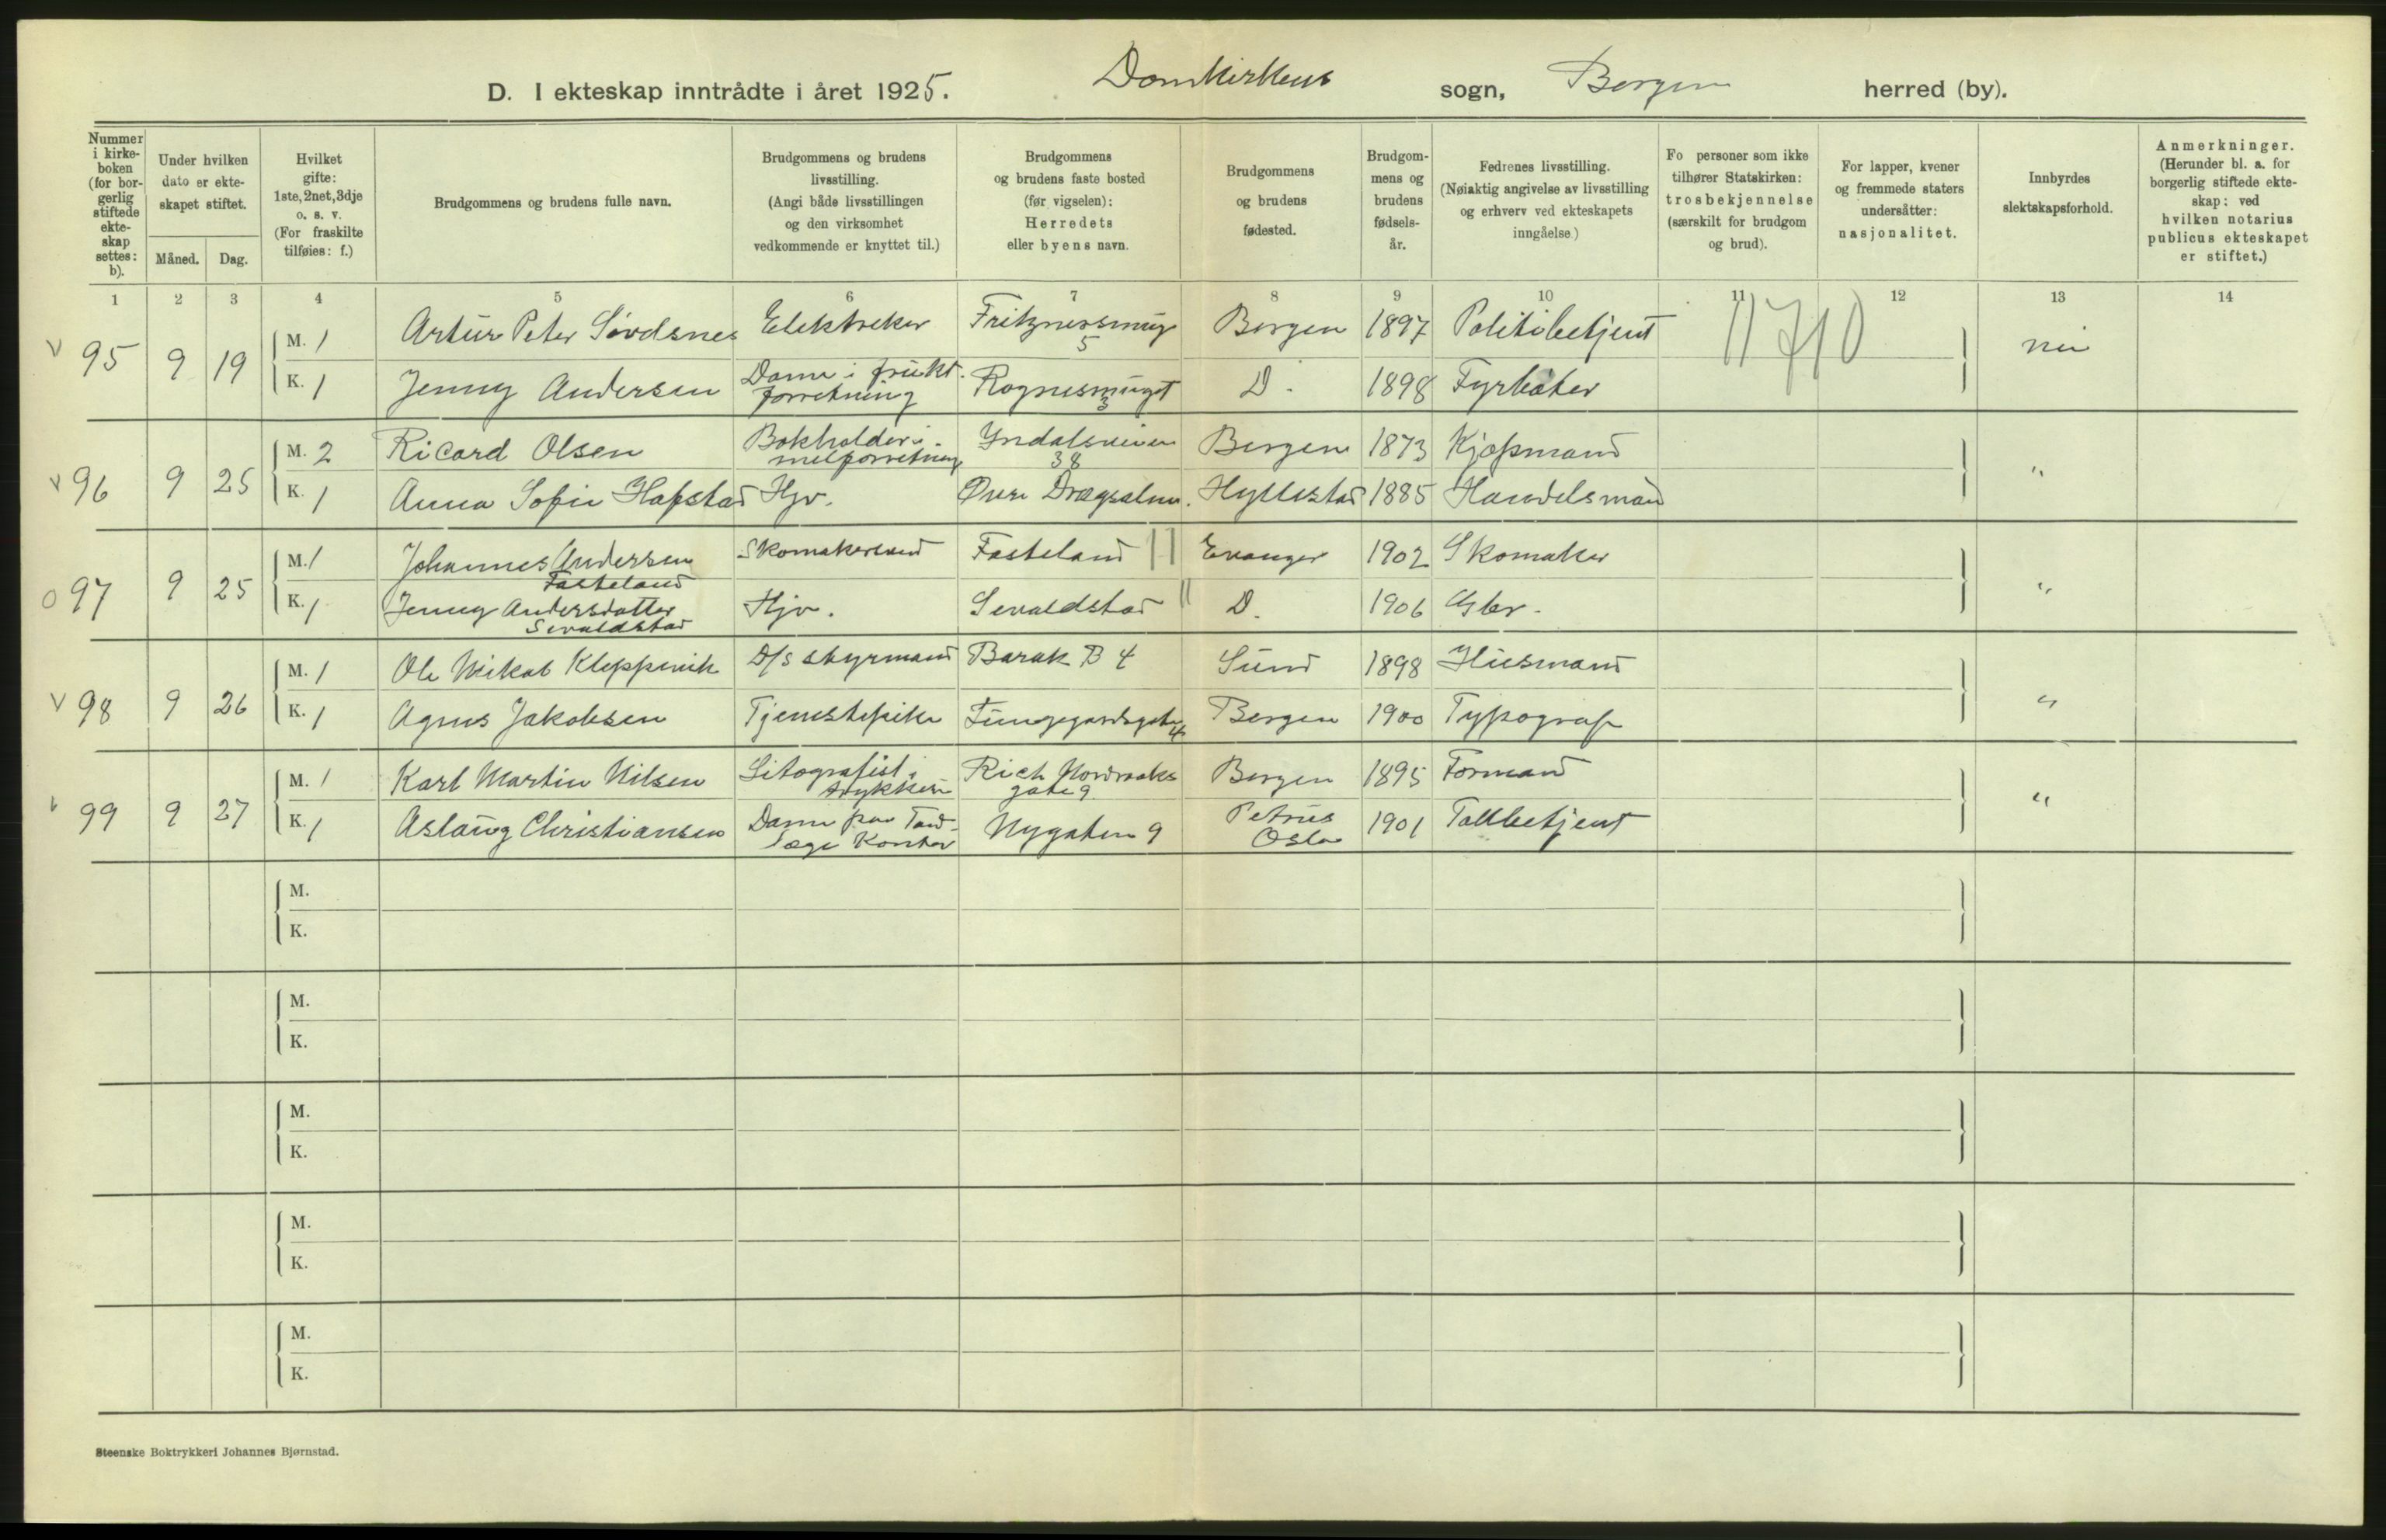 D. I ekteskap inntrådte i året 1925. Domkirkens sogn, Bergen herred (by).
Nummer i kirkeboken (for borgerlig stiftede ekteskap settes: b).
Under hvilken dato er ekteskapet stiftet.
Måned. Dag.
Hvilket gifte: 1ste, 2net, 3dje o. s. v. (For fraskilte tilføies: f.)
Brudgommens og brudens fulle navn.
Brudgommens og brudens livsstilling. (Angi både livsstillingen og den virksomhet vedkommende er knyttet til.)
Brudgommens og brudens faste bosted (før vigselen): Herredets eller byens navn.
Brudgommens og brudens fødested.
Brudgommens og brudens fødselsår.
Fedrenes livsstilling. (Nøiaktig angivelse av livsstilling og erhverv ved ekteskapets inngåelse.)
Fo personer som ikke tilhører Statskirken: trosbekjennelse (særskilt for brudgom og brud).
For lapper, kvener og fremmede staters undersåtter: nasjonalitet.
Innbyrdes slektskapsforhold.
Anmerkninger. (Herunder bl. a. for borgerlig stiftede ekteskap: ved hvilken notarius publicus ekteskapet er stiftet.)
1 2 3 4 5 6 7 8 9 10 11 12 13 14
v 95 9 19 M. 1 Artur Peter Søvdsnes Elektreker Fritznersmug 5 Bergen 1897 Politibetjent 11710 nei
K. 1 Jenny Andersen Dame i frukt forretning Rognesmuget 3 D. 1898 Fyrbøter
v 96 9 25 M. 2 Ricard Olsen Bokholder i melforretning Yndalsveien 38 Bergen 1873 Kjøpmand "
K. 1 Anna Sofie Hafstad Hjv. Øvre Dragsalm. Hyllestad 1885 Handelsmand
o 97 9 25 M. 1 Johannes Andersen Fasteland Skomakersvend Fasteland || Evanger 1902 Skomaker "
K. 1 Jenny Andersdatter Sevaldstad Hjv. Sevaldstad || D. 1906 Gbr.
v 98 9 26 M. 1 Ole Mikal Kleppevik D/s styrmand Barak B 4 Sund 1898 Husmand "
K. 1 Agnes Jakobsen Tjenestepike Bergen 1900 Typograf
99 9 27 M. 1 Karl Martin Nilsen Litografist i trykkeri Rich Nordraaks gate 9 Bergen 1895 Formand "
K. 1 Aslaug Christiansen Dame paa Tandlæge Kontor Nygaten 9 Petrus Oslo 1901 Tollbetjent
M.
K.
M.
K.
M.
K.
M.
K.
M.
K.
Steenske Boktrykkeri Johannes Bjørnstad.